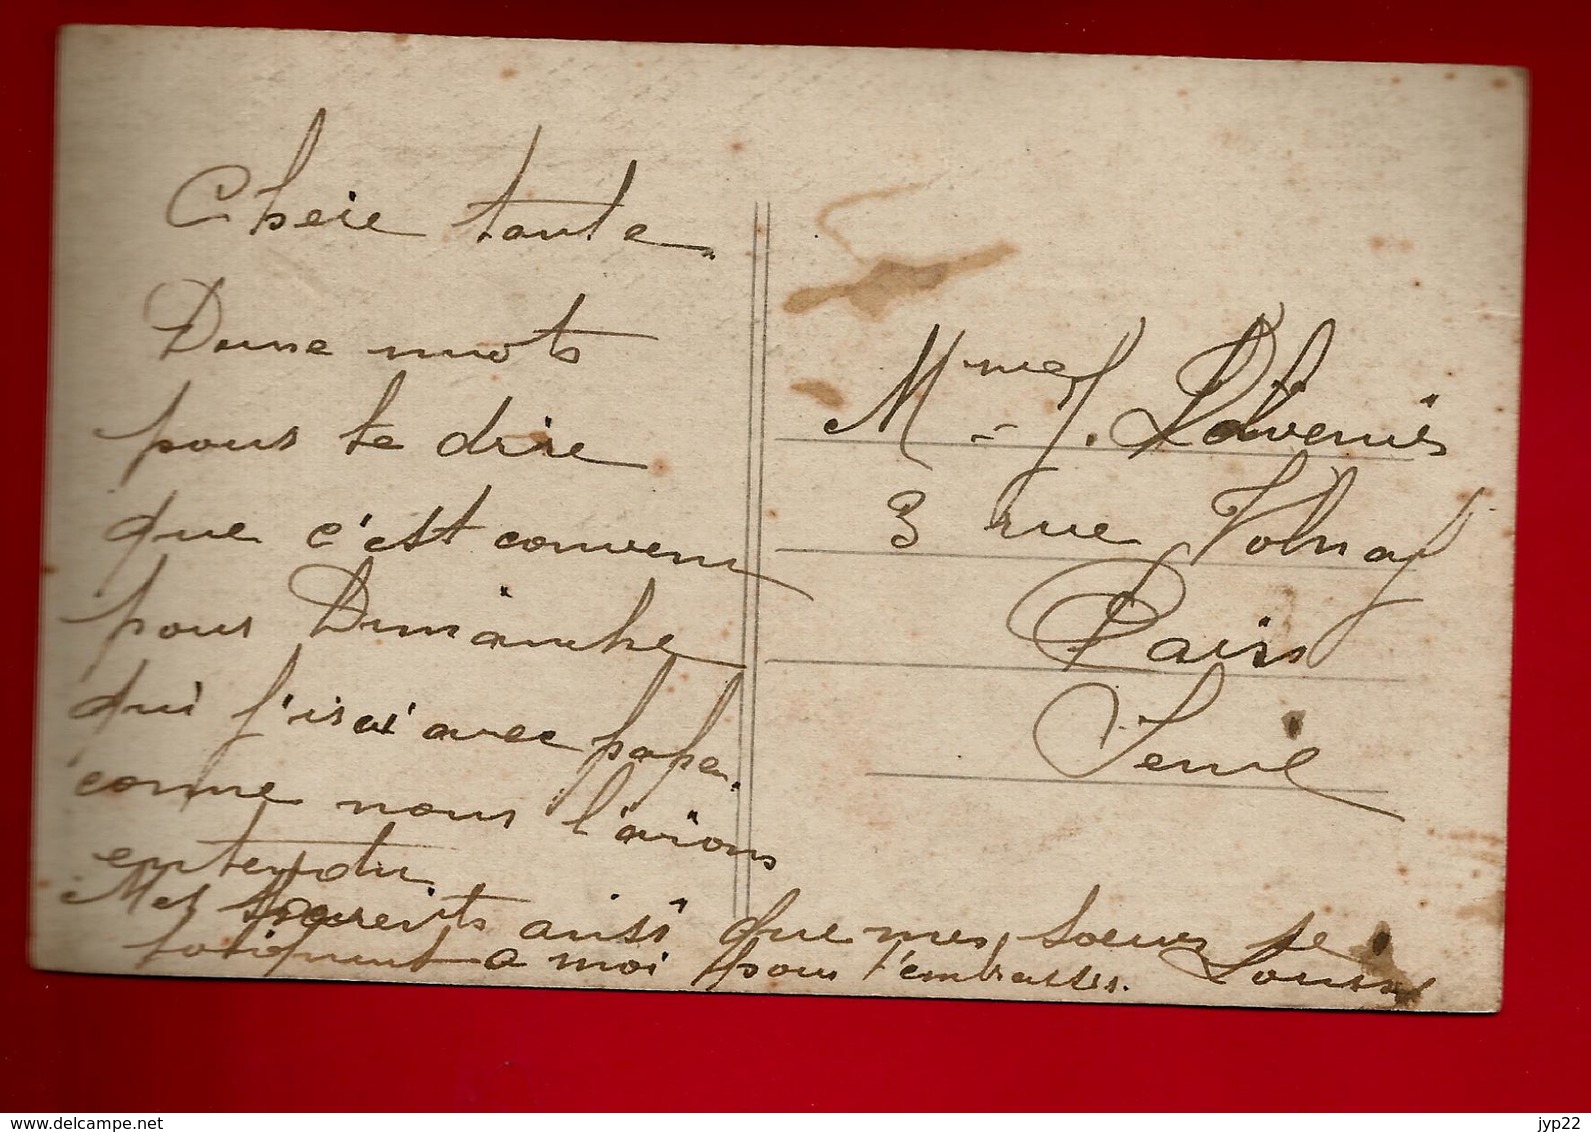 Cheie tante
Deuse mots
pour te dire
que c'est convenu
pour Dimanche
qui j'irai avec papa.
comme nous l'avions
entendu
Mes parents ainsi que mes soeurs se
joignent a moi pour t'embrasser. Louise
Mme J.
3 rue Volnay
Paris
Seine
delcampe.net
jyp22